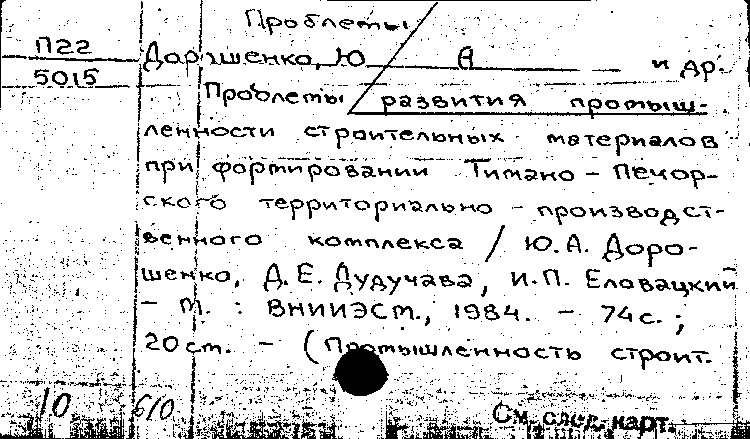 Проблемы
П22
5015
Дорошенко, Ю А и др.
Проблемы развития промыш-
ленности строительных материалов
при формировании Тимано - Печор-
ского территориально - производст-
венного комплекса / Ю.А. Доро-
шенко, Д.Е. Дудучава, И.П. Еловацкий
- М. : ВНИИЭСМ, 1984. - 74с. ;
20см. - (Промышленность строит.
10 610
См. след. карт.